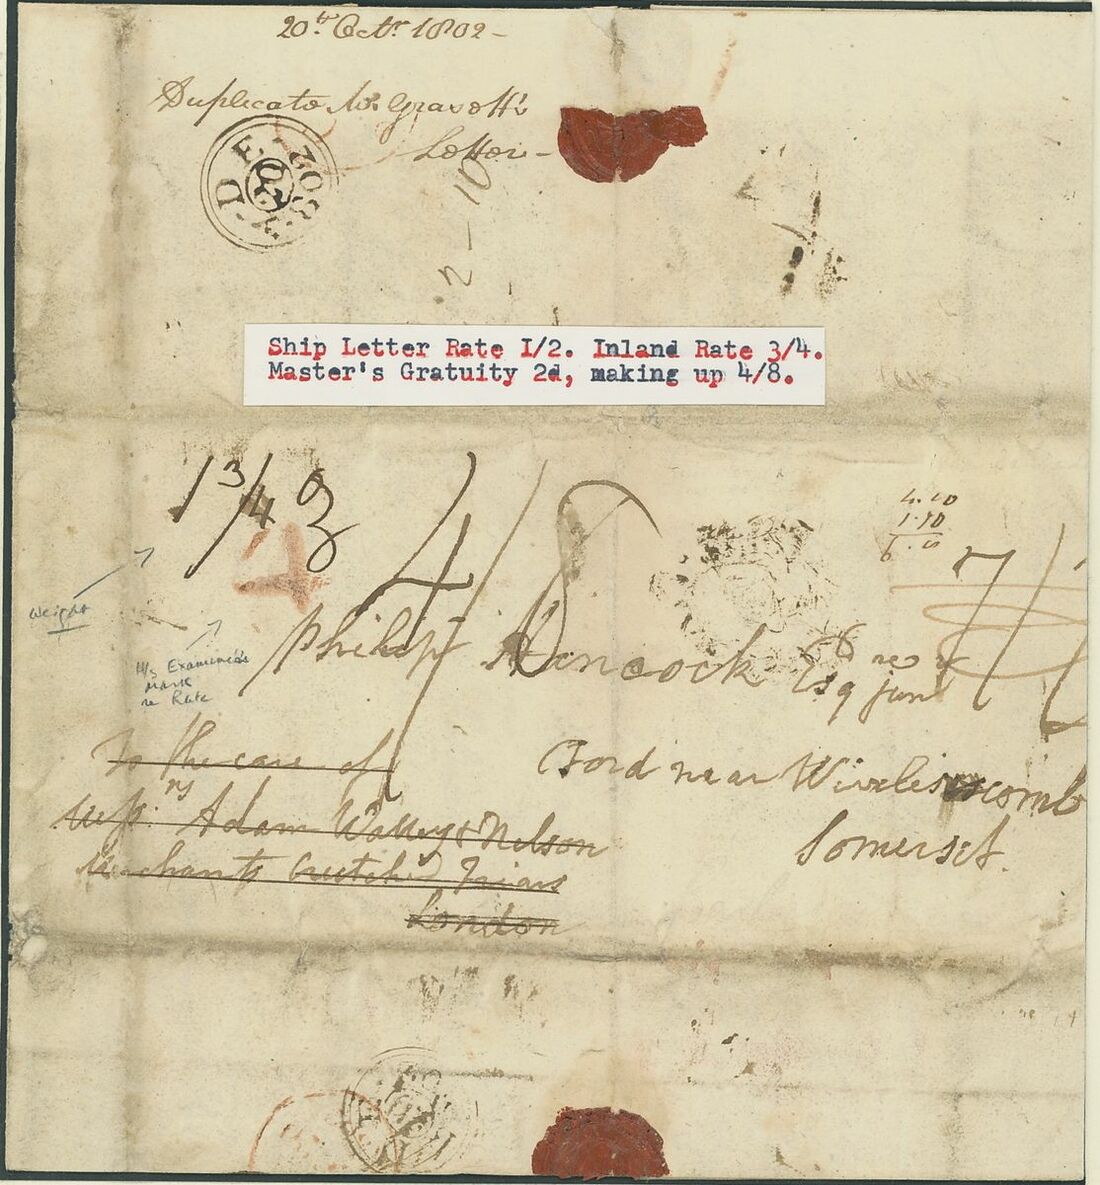 20th Octr 1802 -
Duplicate Mr Gravett's
Letter -
2 - 10
Ship Letter Rate I/2. Inland Rate 3/4.
Master's Gratuity 2d, making up 4/8.
1 3/4
4/8
4.10
1.10
6.0
7/
weight
H/S Examiner's
Mark
re Rate
Philip Hancock Esq junr
To the care of
Messrs Adam Walley & Nelson
Merchants Crutched Friars
London
Ford near Wiveliscomb
Somerset.